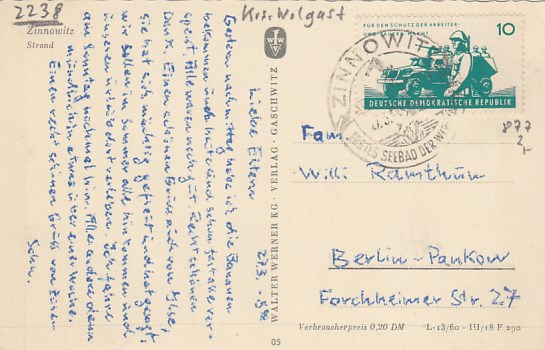 2238
Krs. Wolgast
Zinnowitz
Strand
Liebe Eltern
27.3.
Gestern nachmittag habe ich die Bananen
bekommen und heute sind schon fast alle ver-
speist. Alle waren noch gut. Recht schönen
Dank. Einen schönen Gruss auch von Ilse,
sie hat sich mächtig gefreut und hat gesagt,
wir sollen im Sommer alle hin kommen und
unseren Urlaub dort verleben. Ich fahre
am Sonntag nochmal hin. Alles andere dann
mündlich in etwas über einer Woche.
Einen recht schönen Gruss von Eurem
Sohn.
WALTER WERNER KG · VERLAG · GASCHWITZ
05
FÜR DEN SCHUTZ DER ARBEITER-
UND BAUERN-MACHT
10
DEUTSCHE DEMOKRATISCHE REPUBLIK
ZINNOWITZ
SEEBAD DER
877
2,-
Fam.
Willi Ramthun
Berlin-Pankow
Forchheimer Str. 27
Verbraucherpreis 0,20 DM
L-13/60 - III/18 F 290